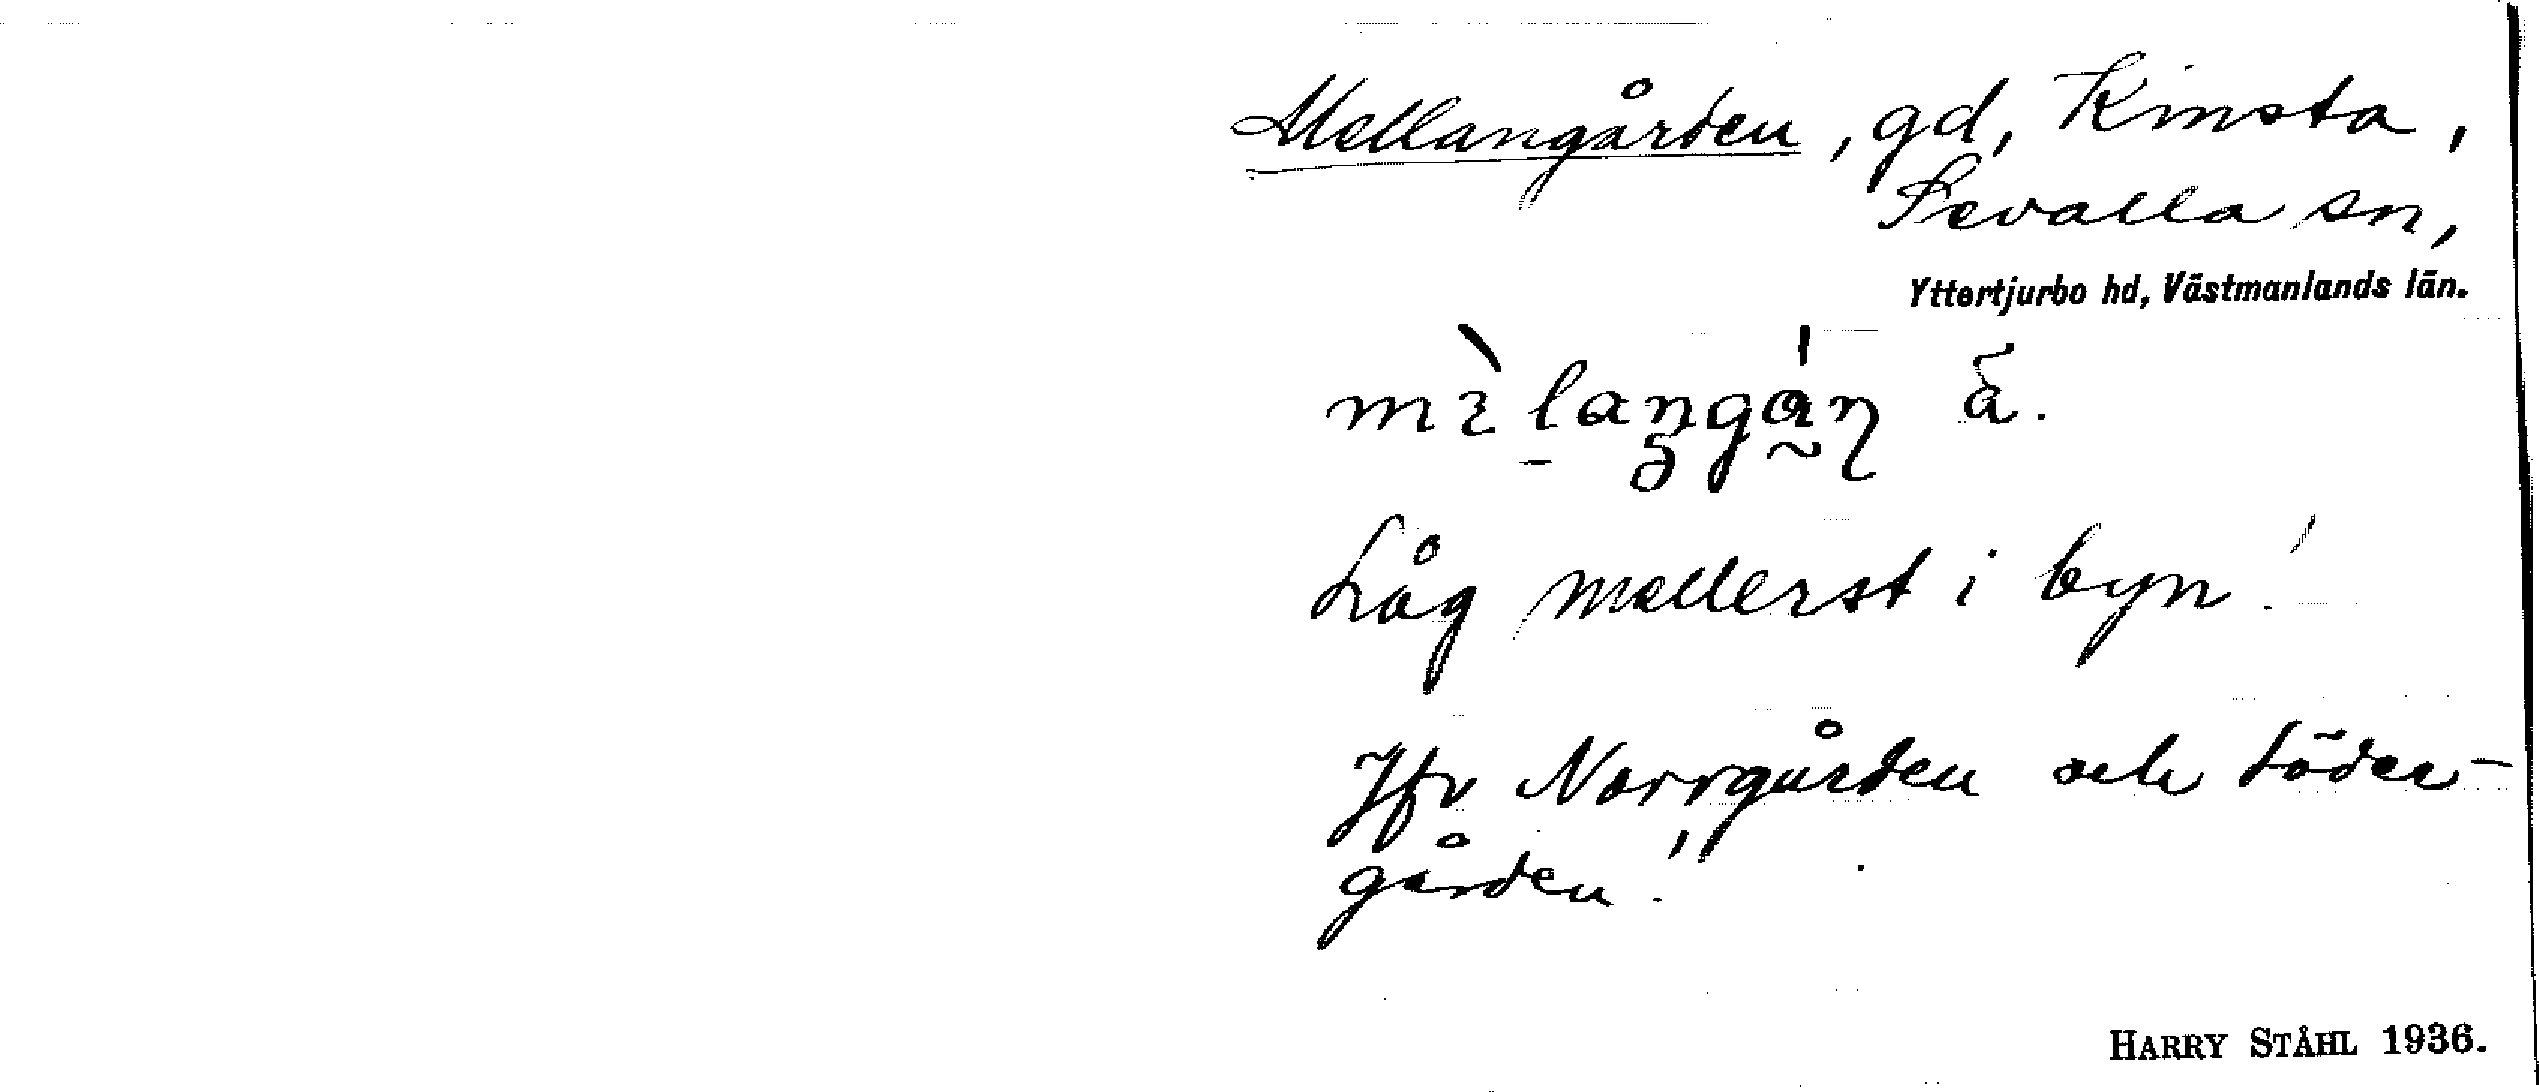 Mellangården, gd, Kinsta,
Sevalla sn,
Yttertjurbo hd, Västmanlands län.
Låg mellerst i byn!
Jfr Norrgården och Söder-
gården!
HARRY STÅHL 1936.